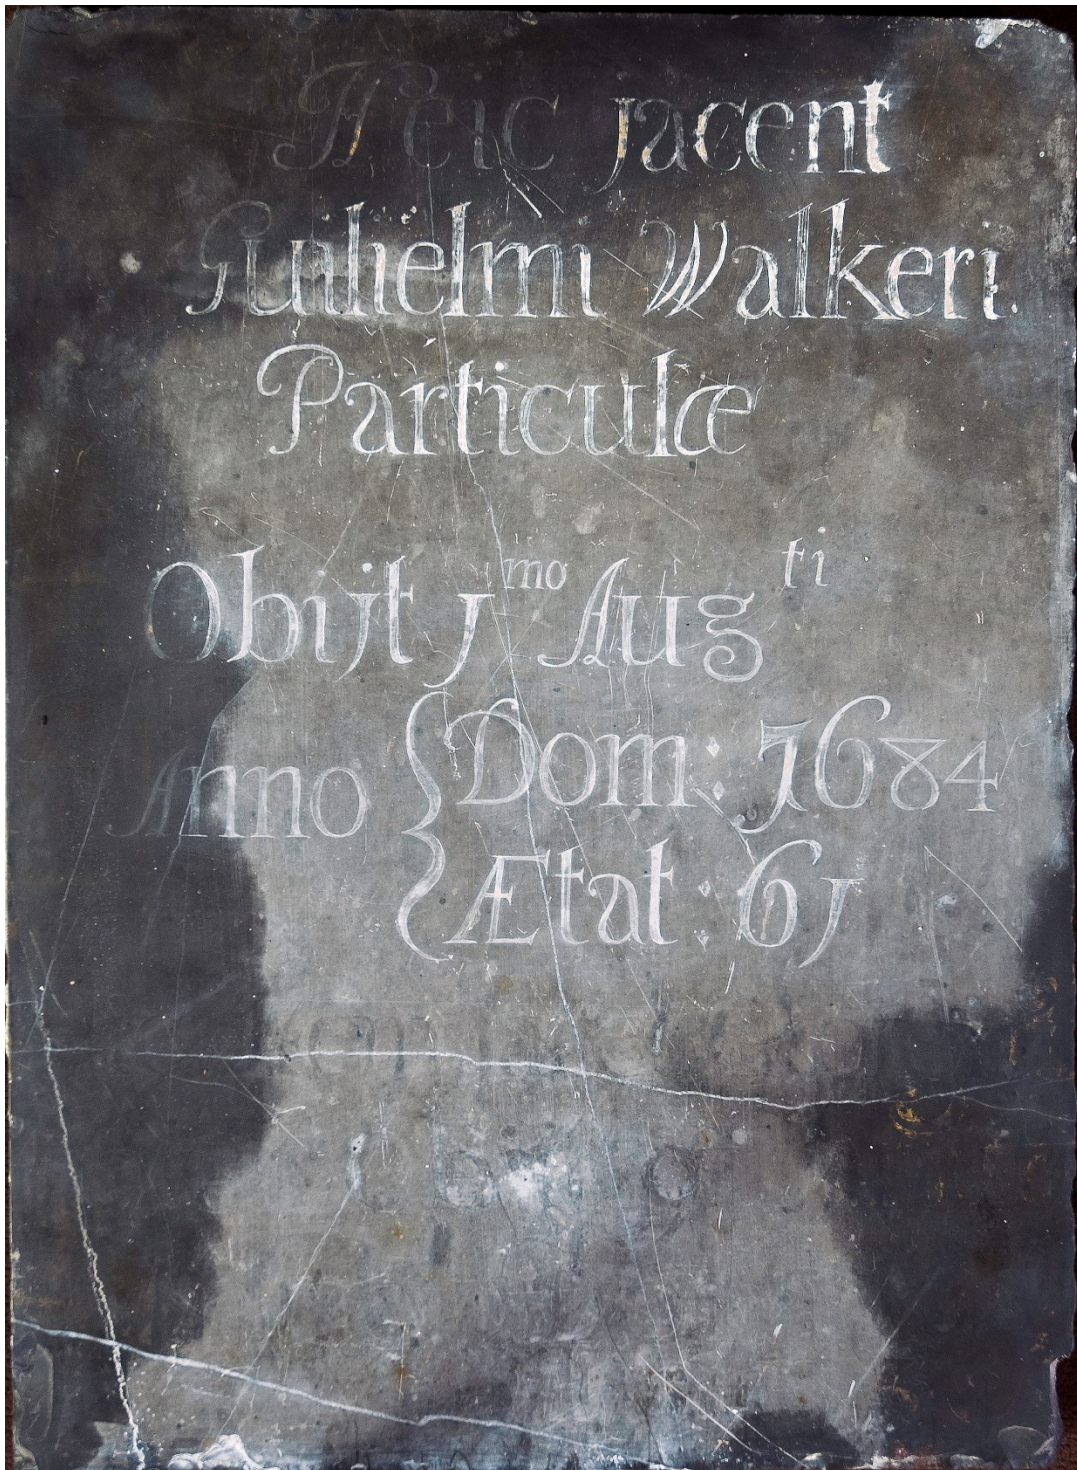 Heic jacent
Gulielmi Walkeri
Particulæ
Obijt 1mo Augti
Anno { Dom: 1684
Ætat: 61